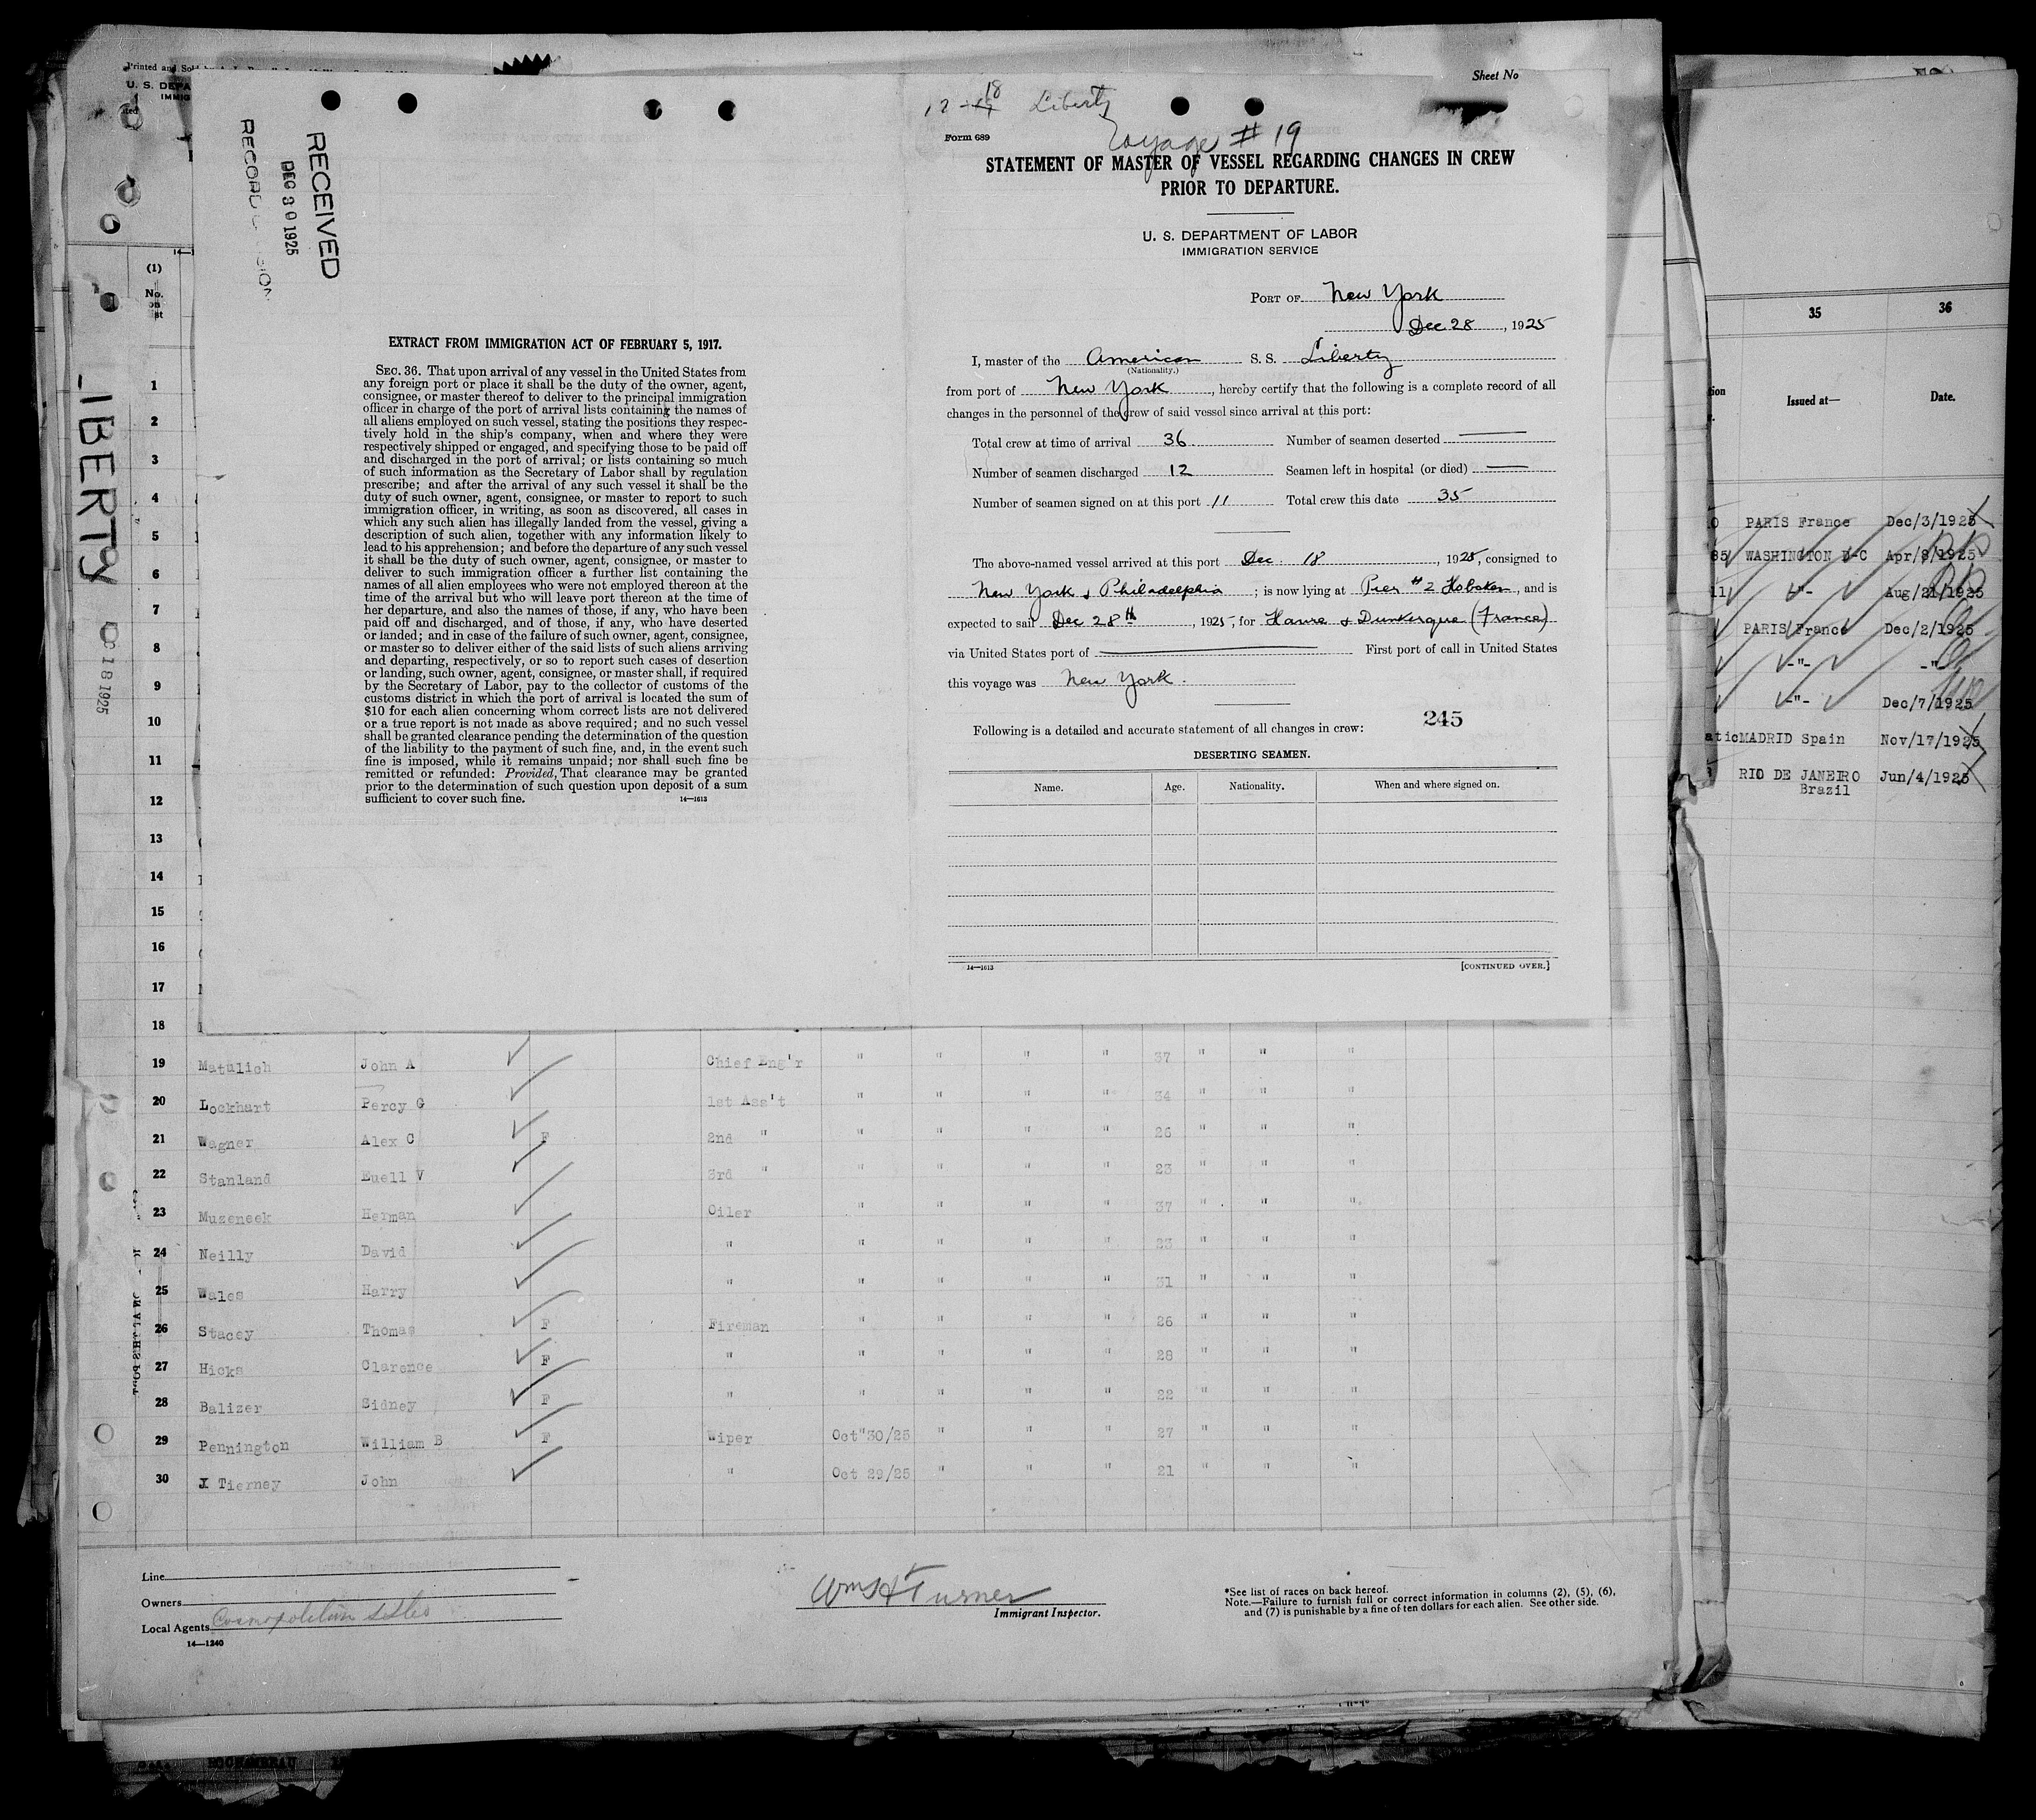 Printed and Sol
U. S. DEPA
IMMIG
Sheet No
RECEIVED
DEC 30 1925
RECORD
LIBERTY
18 1925
EXTRACT FROM IMMIGRATION ACT OF FEBRUARY 5, 1917.
SEC. 36. That upon arrival of any vessel in the United States from
any foreign port or place it shall be the duty of the owner, agent,
consignee, or master thereof to deliver to the principal immigration
officer in charge of the port of arrival lists containing the names of
all aliens employed on such vessel, stating the positions they respec-
tively hold in the ship's company, when and where they were
respectively shipped or engaged, and specifying those to be paid off
and discharged in the port of arrival; or lists containing so much
of such information as the Secretary of Labor shall by regulation
prescribe; and after the arrival of any such vessel it shall be the
duty of such owner, agent, consignee, or master to report to such
immigration officer, in writing, as soon as discovered, all cases in
which any such alien has illegally landed from the vessel, giving a
description of such alien, together with any information likely to
lead to his apprehension; and before the departure of any such vessel
it shall be the duty of such owner, agent, consignee, or master to
deliver to such immigration officer a further list containing the
names of all alien employees who were not employed thereon at the
time of the arrival but who will leave port thereon at the time of
her departure, and also the names of those, if any, who have been
paid off and discharged, and of those, if any, who have deserted
or landed; and in case of the failure of such owner, agent, consignee,
or master so to deliver either of the said lists of such aliens arriving
and departing, respectively, or so to report such cases of desertion
or landing, such owner, agent, consignee, or master shall, if required
by the Secretary of Labor, pay to the collector of customs of the
customs district in which the port of arrival is located the sum of
$10 for each alien concerning whom correct lists are not delivered
or a true report is not made as above required; and no such vessel
shall be granted clearance pending the determination of the question
of the liability to the payment of such fine, and, in the event such
fine is imposed, while it remains unpaid; nor shall such fine be
remitted or refunded: Provided, That clearance may be granted
prior to the determination of such question upon deposit of a sum
sufficient to cover such fine. 14—1613
12-18 Liberty
Voyage # 19
Form 689
STATEMENT OF MASTER OF VESSEL REGARDING CHANGES IN CREW
PRIOR TO DEPARTURE.
U. S. DEPARTMENT OF LABOR
IMMIGRATION SERVICE
PORT OF New York
Dec 28, 1925
I, master of the American S. S. Liberty
(Nationality.)
from port of New York, hereby certify that the following is a complete record of all
changes in the personnel of the crew of said vessel since arrival at this port:
Total crew at time of arrival 36 Number of seamen deserted —
Number of seamen discharged 12 Seamen left in hospital (or died) —
Number of seamen signed on at this port 11 Total crew this date 35
The above-named vessel arrived at this port Dec. 18, 1925, consigned to
New York & Philadelphia; is now lying at Pier #2 Hoboken, and is
expected to sail Dec 28th, 1925, for Havre & Dunkerque (France)
via United States port of — First port of call in United States
this voyage was New York.
Following is a detailed and accurate statement of all changes in crew: 245
DESERTING SEAMEN.
Name. Age. Nationality. When and where signed on.
14—1613 [CONTINUED OVER.]
(1)
No.
on
1
2
3
4
5
6
7
8
9
10
11
12
13
14
15
16
17
18
19 Matulich John A Chief Eng'r " " " " 37 " " "
20 Lockhart Percy G 1st Ass't " " " " 34 " " "
21 Wagner Alex C F 2nd " " " " " 26 " " "
22 Stanland Euell V 3rd " " " " " 23 " " "
23 Muzeneek Herman Oiler " " " " 37 " " "
24 Neilly David " " " " " 23 " " "
25 Wales Harry " " " " " 31 " " "
26 Stacey Thomas F Fireman " " " " 26 " " "
27 Hicks Clarence F " " " " " 28 " " "
28 Balizer Sidney F " " " " " 22 " " "
29 Pennington William B F Wiper Oct"30/25 " " " 27 " " "
30 J Tierney John " Oct 29/25 " " " 21 " " "
Line
Owners
Local Agents Cosmopolitan
14—1240
Wm H Turner
Immigrant Inspector.
*See list of races on back hereof.
Note.—Failure to furnish full or correct information in columns (2), (5), (6),
and (7) is punishable by a fine of ten dollars for each alien. See other side.
35 36
Issued at— Date.
PARIS France Dec/3/1925
85 WASHINGTON D-C Apr/8/1925
11 -"- Aug/21/1925
PARIS France Dec/2/1925
-"- -"-
-"- Dec/7/1925
atic MADRID Spain Nov/17/1925
RIO DE JANEIRO Jun/4/1925
Brazil